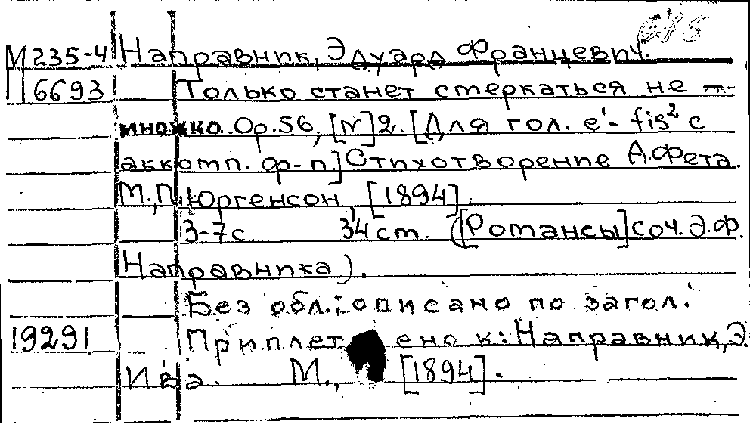 М235-4 Направник, Эдуард Францевич.
П6693 Только станет смеркаться не-
множко. Ор.56, [N]2. [Для гол. e¹- fis² с
аккомп. ф-п.] Стихотворение А.Фета.
М., П. Юргенсон, [1894].
3-7с 34 см. ([Романсы] соч. Э.Ф.
Направника).
Без обл.: описано по загол.
19291 Приплетено к: Направник, Э.
Ива. М., [1894].